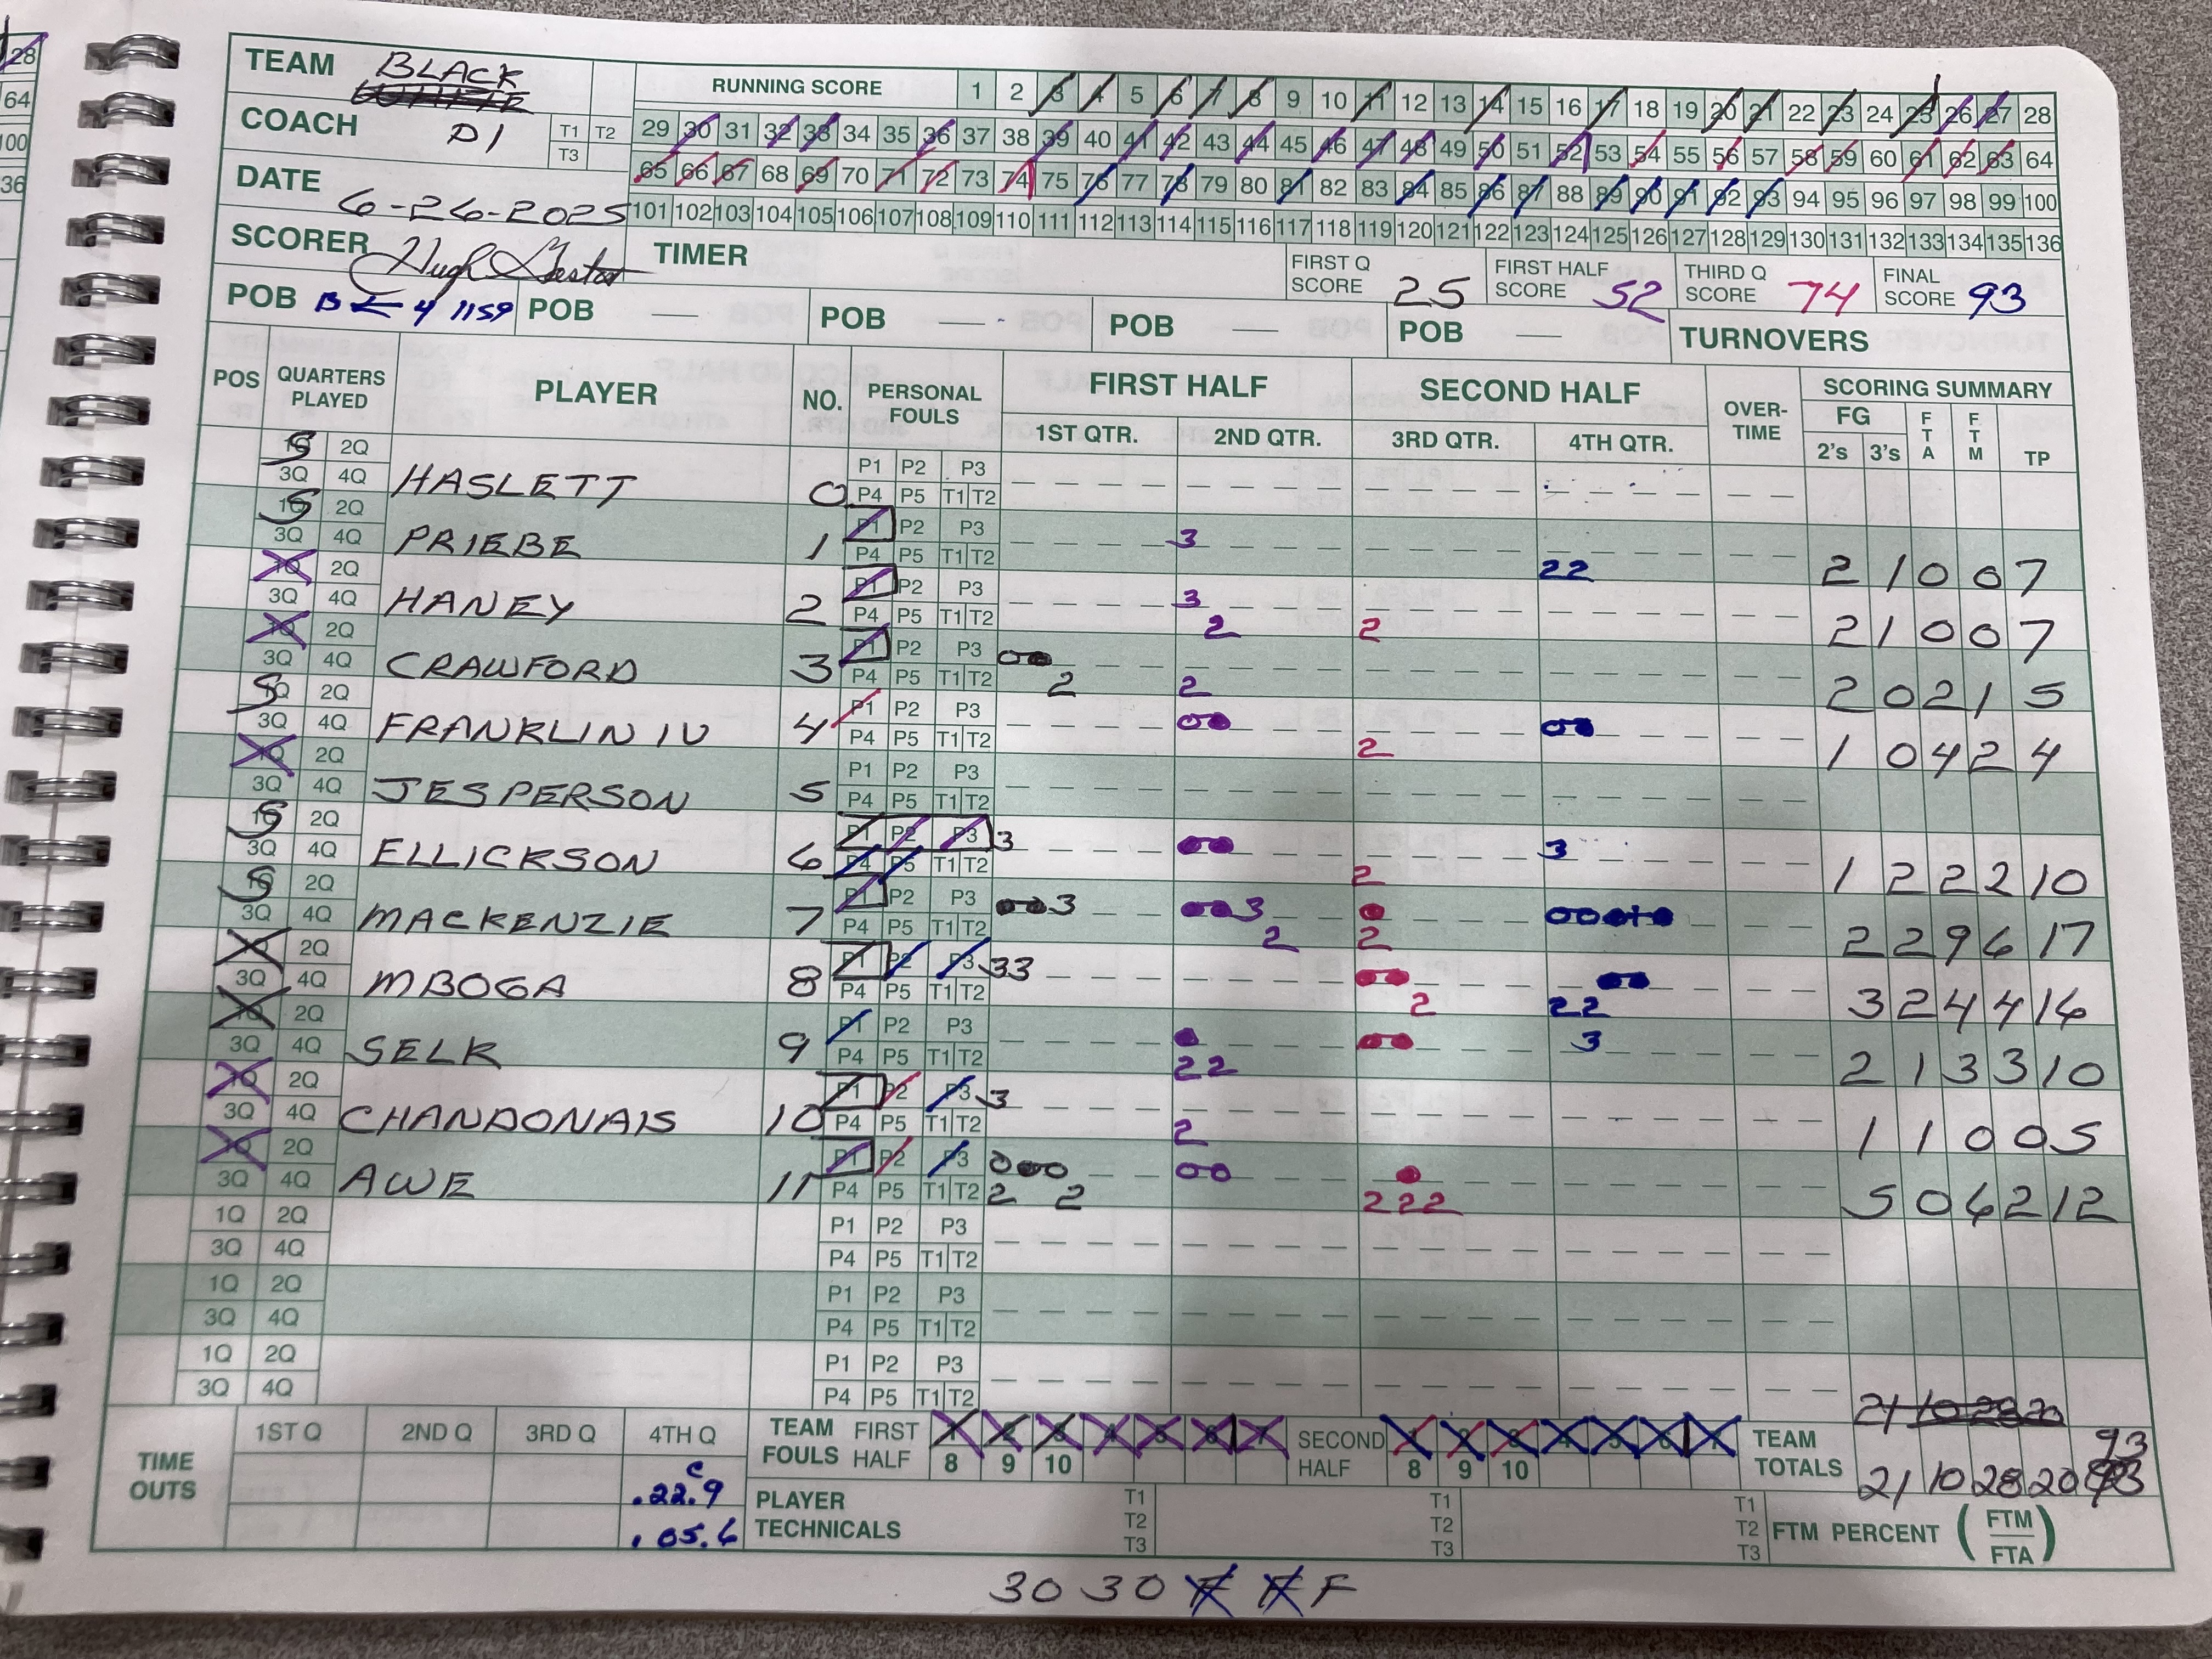 28
64
100
36
TEAM BLACK
COACH D1 T1 T2 T3
DATE 6-26-2025
SCORER Hugh
TIMER
RUNNING SCORE 1 2 3 4 5 6 7 8 9 10 11 12 13 14 15 16 17 18 19 20 21 22 23 24 25 26 27 28
29 30 31 32 33 34 35 36 37 38 39 40 41 42 43 44 45 46 47 48 49 50 51 52 53 54 55 56 57 58 59 60 61 62 63 64
65 66 67 68 69 70 71 72 73 74 75 76 77 78 79 80 81 82 83 84 85 86 87 88 89 90 91 92 93 94 95 96 97 98 99 100
101 102 103 104 105 106 107 108 109 110 111 112 113 114 115 116 117 118 119 120 121 122 123 124 125 126 127 128 129 130 131 132 133 134 135 136
FIRST Q SCORE 25 FIRST HALF SCORE 52 THIRD Q SCORE 74 FINAL SCORE 93
POB B ← 4 1159 POB — POB — POB — POB — TURNOVERS
POS QUARTERS PLAYED PLAYER NO. PERSONAL FOULS FIRST HALF SECOND HALF OVER-TIME SCORING SUMMARY
1ST QTR. 2ND QTR. 3RD QTR. 4TH QTR. FG 2's 3's FTA FTM TP
S 2Q 3Q 4Q HASLETT 0 P1 P2 P3 P4 P5 T1 T2
S 2Q 3Q 4Q PRIEBE 1 P1 P2 P3 P4 P5 T1 T2 3 22 2 1 0 0 7
1Q 2Q 3Q 4Q HANEY 2 P1 P2 P3 P4 P5 T1 T2 3 2 2 2 1 0 0 7
1Q 2Q 3Q 4Q CRAWFORD 3 P1 P2 P3 P4 P5 T1 T2 2 2 2 0 2 1 5
S 2Q 3Q 4Q FRANKLIN IV 4 P1 P2 P3 P4 P5 T1 T2 2 1 0 4 2 4
1Q 2Q 3Q 4Q JESPERSON 5 P1 P2 P3 P4 P5 T1 T2
S 2Q 3Q 4Q ELLICKSON 6 P1 P2 P3 P4 P5 T1 T2 3 2 3 1 2 2 2 10
S 2Q 3Q 4Q MACKENZIE 7 P1 P2 P3 P4 P5 T1 T2 3 3 2 2 2 2 9 6 17
1Q 2Q 3Q 4Q MBOGA 8 P1 P2 P3 P4 P5 T1 T2 33 2 22 3 2 4 4 16
1Q 2Q 3Q 4Q SELK 9 P1 P2 P3 P4 P5 T1 T2 22 3 2 1 3 3 10
1Q 2Q 3Q 4Q CHANDONAIS 10 P1 P2 P3 P4 P5 T1 T2 3 2 1 1 0 0 5
1Q 2Q 3Q 4Q AWE 11 P1 P2 P3 P4 P5 T1 T2 2 2 222 5 0 6 2 12
1Q 2Q 3Q 4Q P1 P2 P3 P4 P5 T1 T2
1Q 2Q 3Q 4Q P1 P2 P3 P4 P5 T1 T2
1Q 2Q 3Q 4Q P1 P2 P3 P4 P5 T1 T2
21 10 28 20
TIME OUTS 1ST Q 2ND Q 3RD Q 4TH Q
C .22.9
.05.6
TEAM FOULS FIRST HALF 1 2 3 4 5 6 7 8 9 10 SECOND HALF 1 2 3 4 5 6 7 8 9 10
TEAM TOTALS 21 10 28 20 93
PLAYER TECHNICALS T1 T2 T3 T1 T2 T3 T1 T2 T3
FTM PERCENT (FTM/FTA)
30 30 F F F